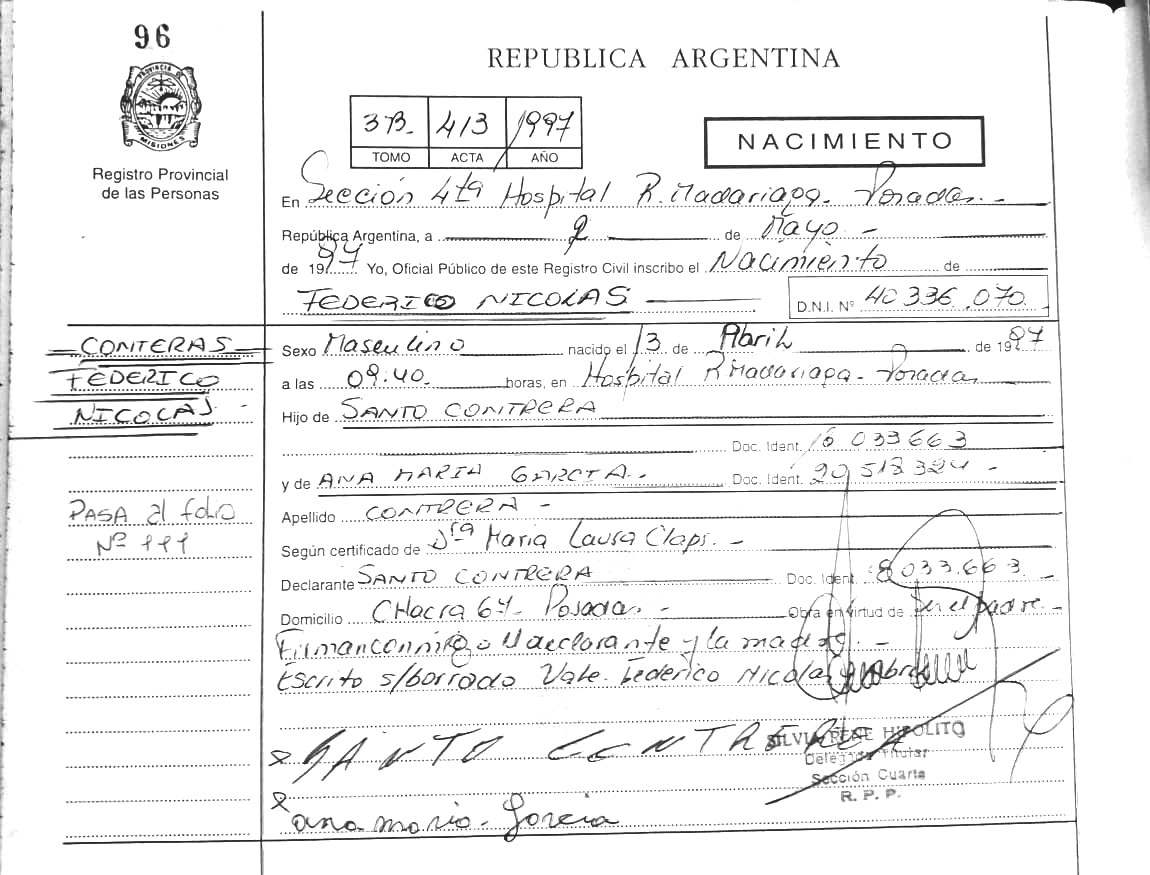 96
REPUBLICA ARGENTINA
PROVINCIA DE
MISIONES
Registro Provincial
de las Personas
3B- 413 1997
TOMO ACTA AÑO
NACIMIENTO
En Sección 4ta Hospital R. Madariaga - Posadas. -
República Argentina, a 2 de Mayo -
de 1997 Yo, Oficial Público de este Registro Civil inscribo el Nacimiento de
FEDERICO NICOLAS D.N.I. Nº 40 336.070
CONTERAS
FEDERICO
NICOLAS -
Sexo Masculino nacido el 13 de Abril de 1997
a las 09.40. horas, en Hospital R Madariaga - Posadas
Hijo de SANTO CONTRERA
Doc. Ident. 033663
y de ANA MARIA GARCIA. - Doc. Ident. 20 518 324 -
PASA al folio
Nº 111
Apellido CONTRERA -
Según certificado de Dra Maria Laura Claps. -
Declarante SANTO CONTRERA Doc. Ident. 033.663
Domicilio CHacra 64 - Posadas. - Obra en virtud de ser el padre. -
Firman conmigo el declarante y la madre. -
Escrito s/borrado Vale. Federico Nicolas Abril
SANTO CONTRERA
SILVIA IRENE HIPOLITO
Delegada Titular
Sección Cuarta
R. P. P.
ana maria - Garcia